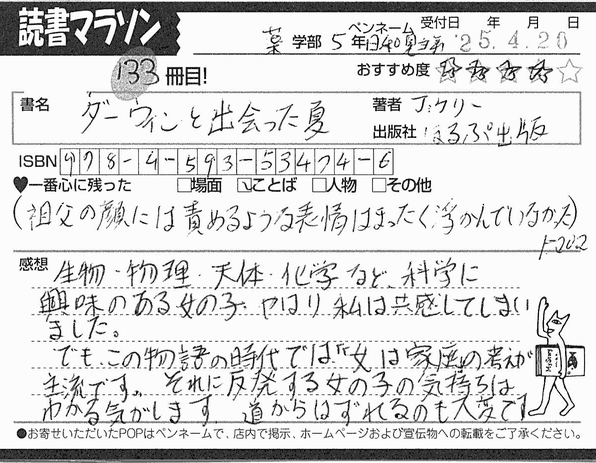 読書マラソン
133冊目!
薬学部 5年 ペンネーム 受付日 年 月 日
'25.4.20
おすすめ度 ☆☆☆☆☆
書名 ダーウィンと出会った夏
著者 J.ケリー
出版社 ほるぷ出版
ISBN 978-4-593-53474-6
♥一番心に残った □場面 ☑ことば □人物 □その他
(祖父の顔には責めるような表情はまったく浮かんでいなかった)
P.202
感想 生物・物理・天体・化学など、科学に
興味のある女の子。やはり私は共感してしまい
ました。
でも、この物語の時代では「女は家庭」の考えが
主流です。それに反発する女の子の気持ちは
わかる気がします。道からはずれるのも大変です
●お寄せいただいたPOPはペンネームで、店内で掲示、ホームページおよび宣伝物への転載をご了承ください。